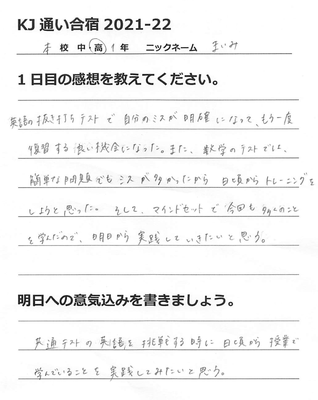 KJ 通い合宿 2021-22
本 校 中 高 1 年 ニックネーム まいみ
1日目の感想を教えてください。
英語の抜き打ちテストで自分のミスが明確になって、もう一度
復習する良い機会になった。また、数学のテストでは、
簡単な問題でもミスが多かったから日頃からトレーニングを
しようと思った。そして、マインドセットで今回も多くのこと
を学んだので、明日から実践していきたいと思う。
明日への意気込みを書きましょう。
共通テストの英語を挑戦する時に日頃から授業で
学んでいることを実践してみたいと思う。